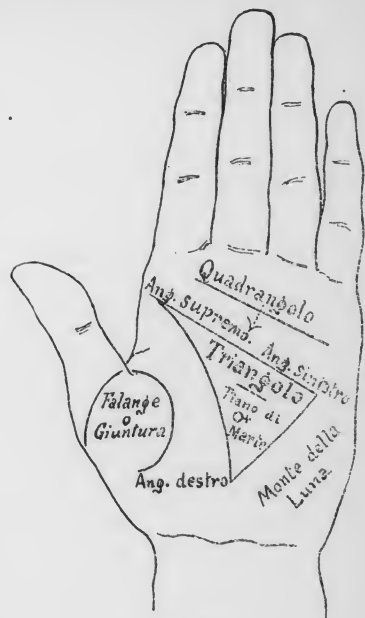 Quadrangolo
Ang. supremo.
Ang. sinistro
Triangolo
Piano di
♂
Marte
Falange
o
Giuntura
Ang. destro
Monte della
Luna